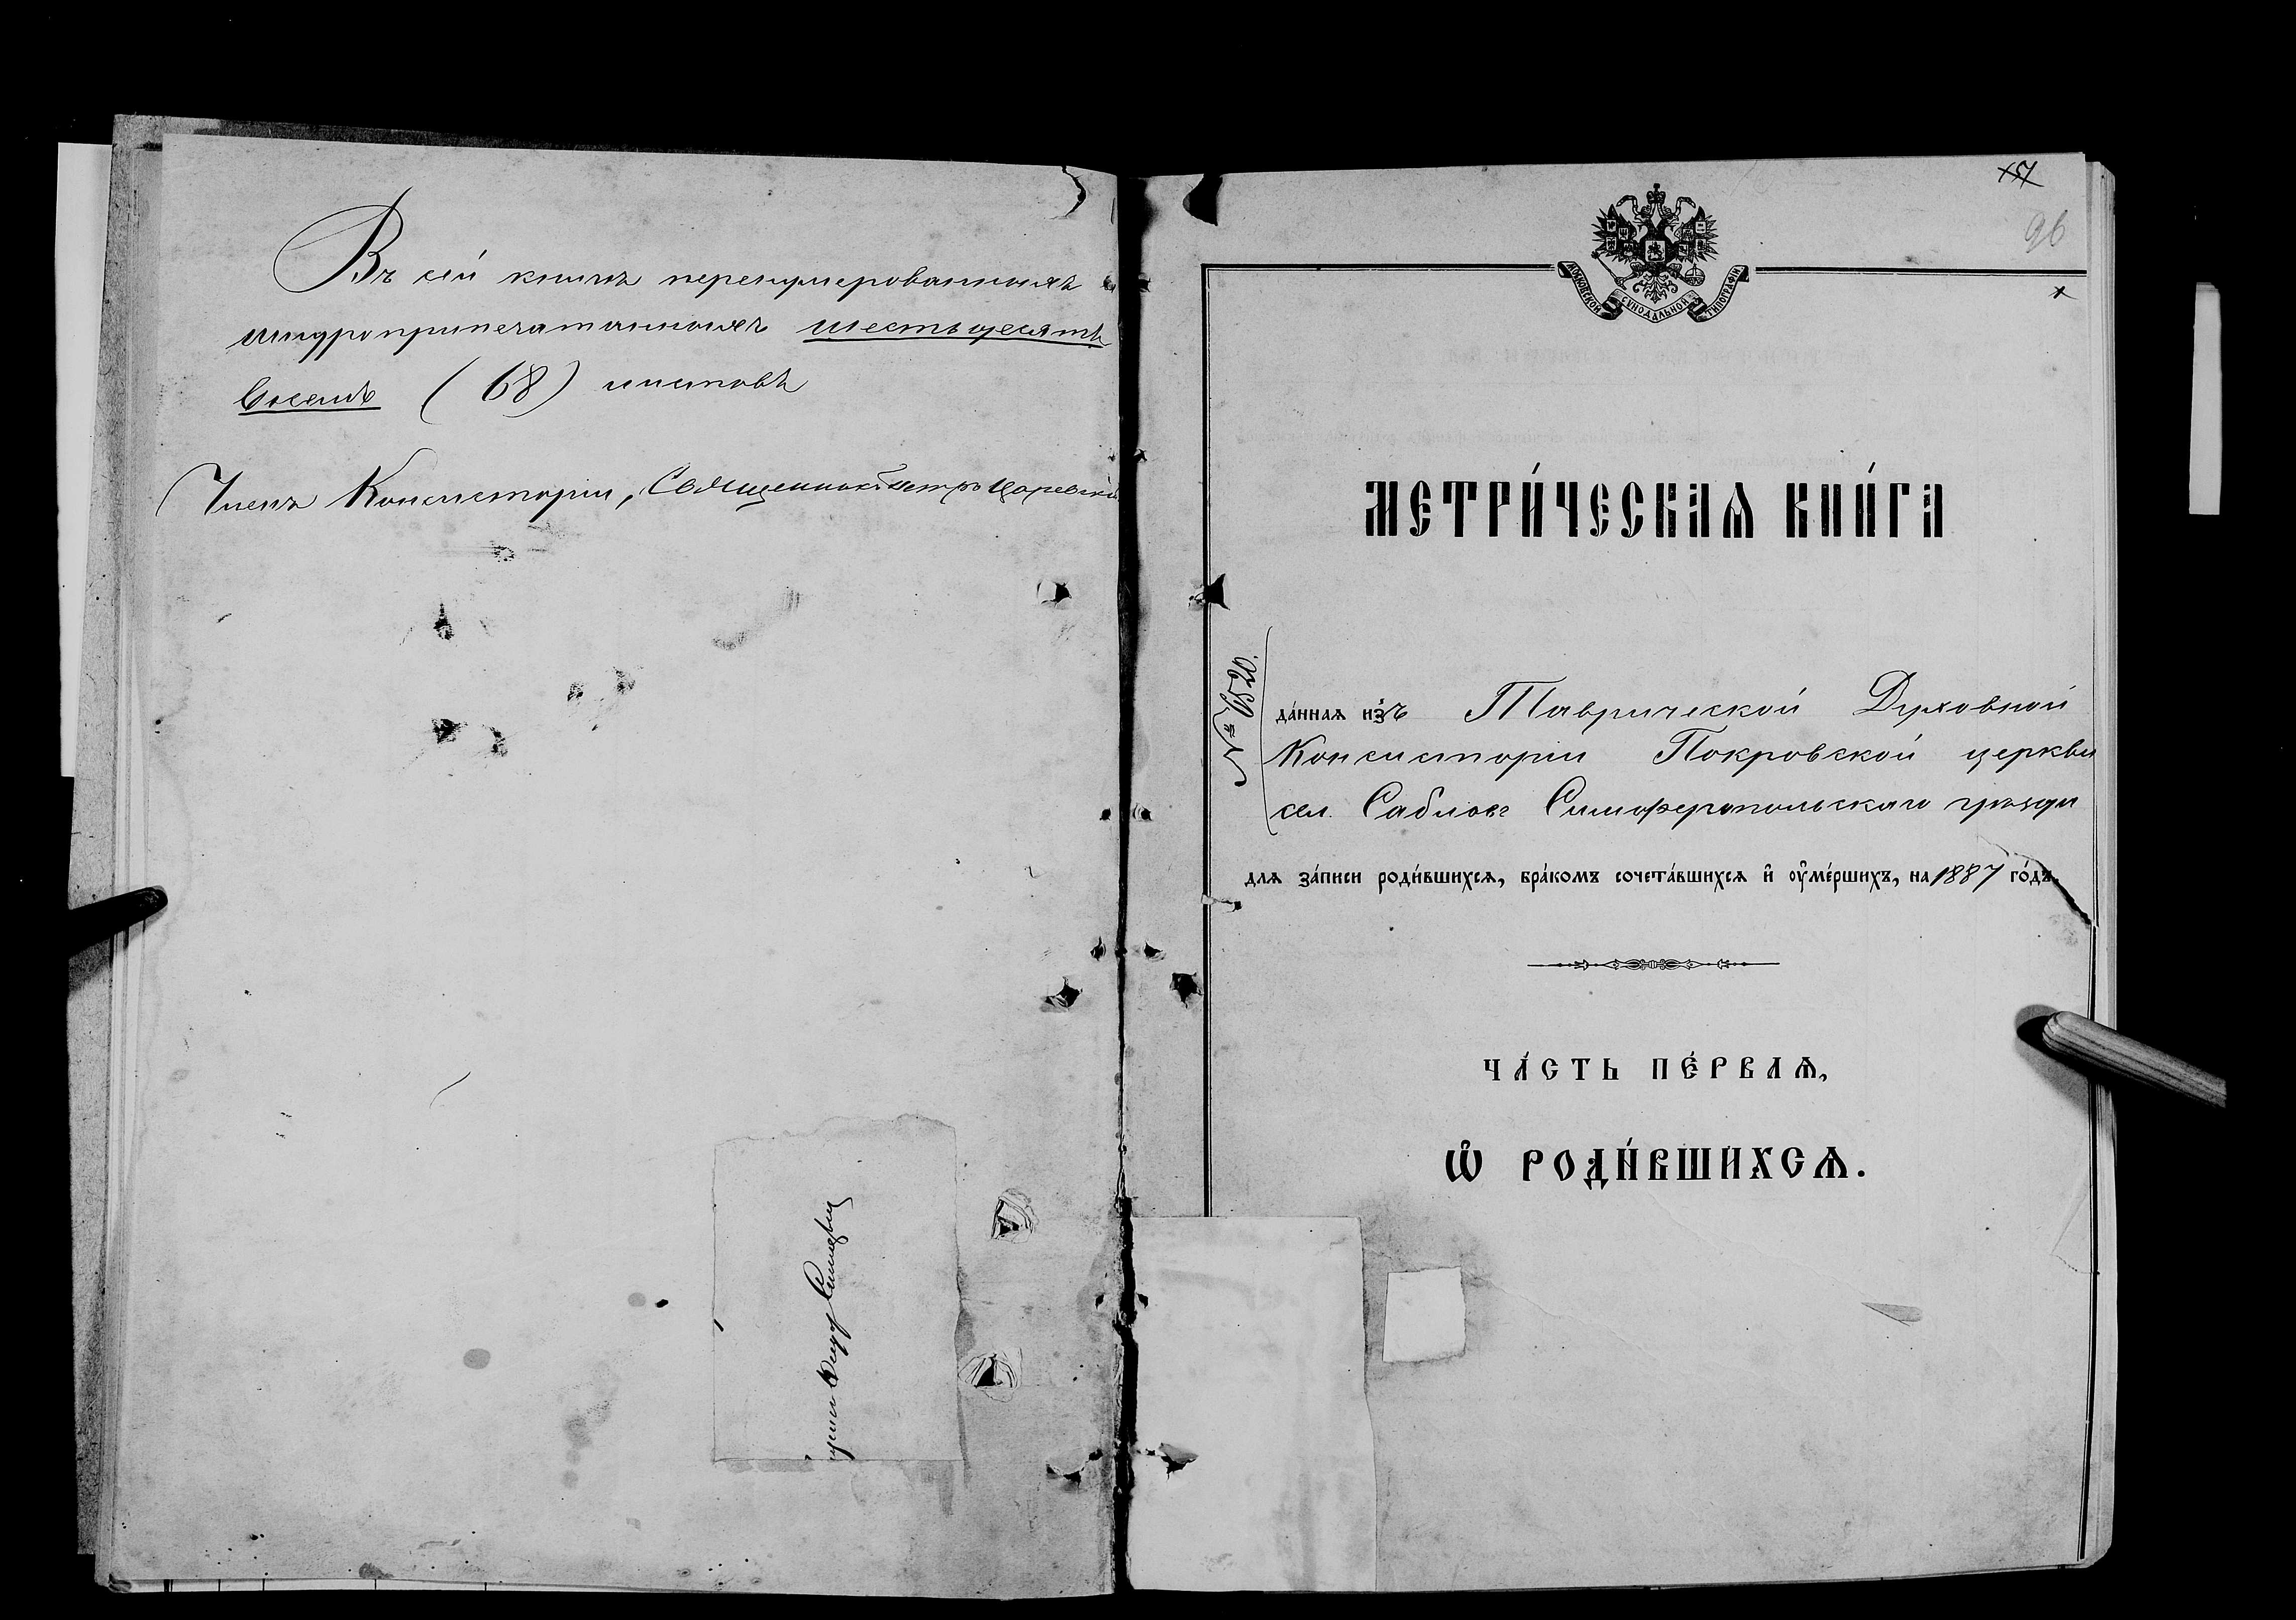 Въ сей книгѣ перенумерованныхъ и
шнуроприпечатанныхъ шестьдесятъ
восемь (68) листовъ
Членъ Консисторіи, Священникъ Петръ Царевскій
151
96
МОСКОВСКОЙ СѴНОДАЛЬНОЙ ТИПОГРАФІИ
МЕТРИ́ЧЕСКАѦ КНИ́ГА
№ 6520.
да́нная из̾ъ Таврической Духовной
Консисторіи Покровской церкви
сел. Сабловъ Симферопольскаго уѣзда
для за́писи роди́вшихсѧ, бра́комъ сочета́вшихсѧ и҆ ѹ҆ме́ршихъ, на 1887 го́дъ.
ЧА́СТЬ ПЕ́РВАѦ,
Ѡ҆ РОДИ́ВШИХСѦ.